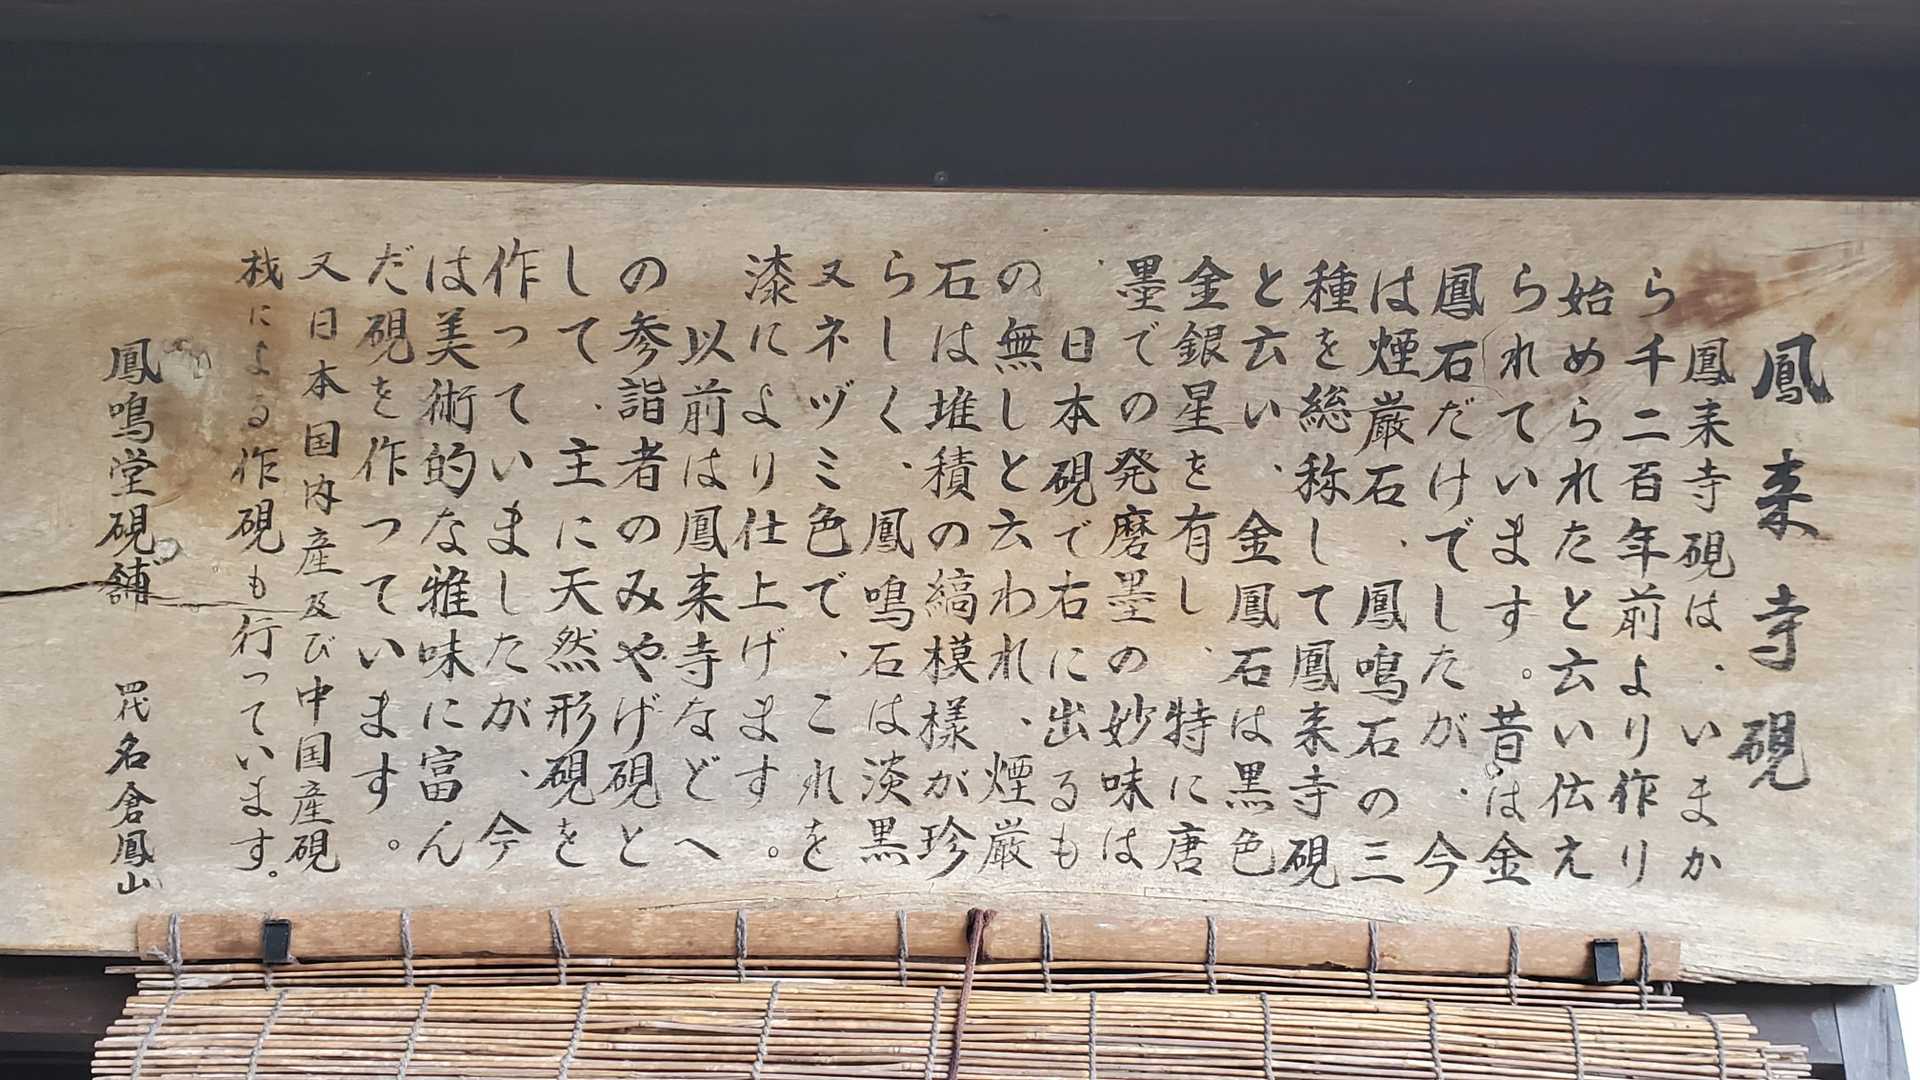 鳳来寺硯
鳳来寺硯は、いまか
ら千二百年前より作り
始められたと云い伝え
られています。昔は金
鳳石だけでしたが、今
は煙巌石、鳳鳴石の三
種を総称して鳳来寺硯
と云い、金鳳石は黒色
金銀星を有し、特に唐
墨での発磨墨の妙味は
日本硯で右に出るも
の無しと云われ、煙巌
石は堆積の縞模様が珍
らしく、鳳鳴石は淡黒
又ネヅミ色で、これを
漆により仕上げます。
以前は鳳来寺などへ
の参詣者のみやげ硯と
して、主に天然形硯を
作っていましたが、今
は美術的な雅味に富ん
だ硯を作っています。
又日本国内産及び中国産硯
材による作硯も行っています。
鳳鳴堂硯舗 四代 名倉鳳山